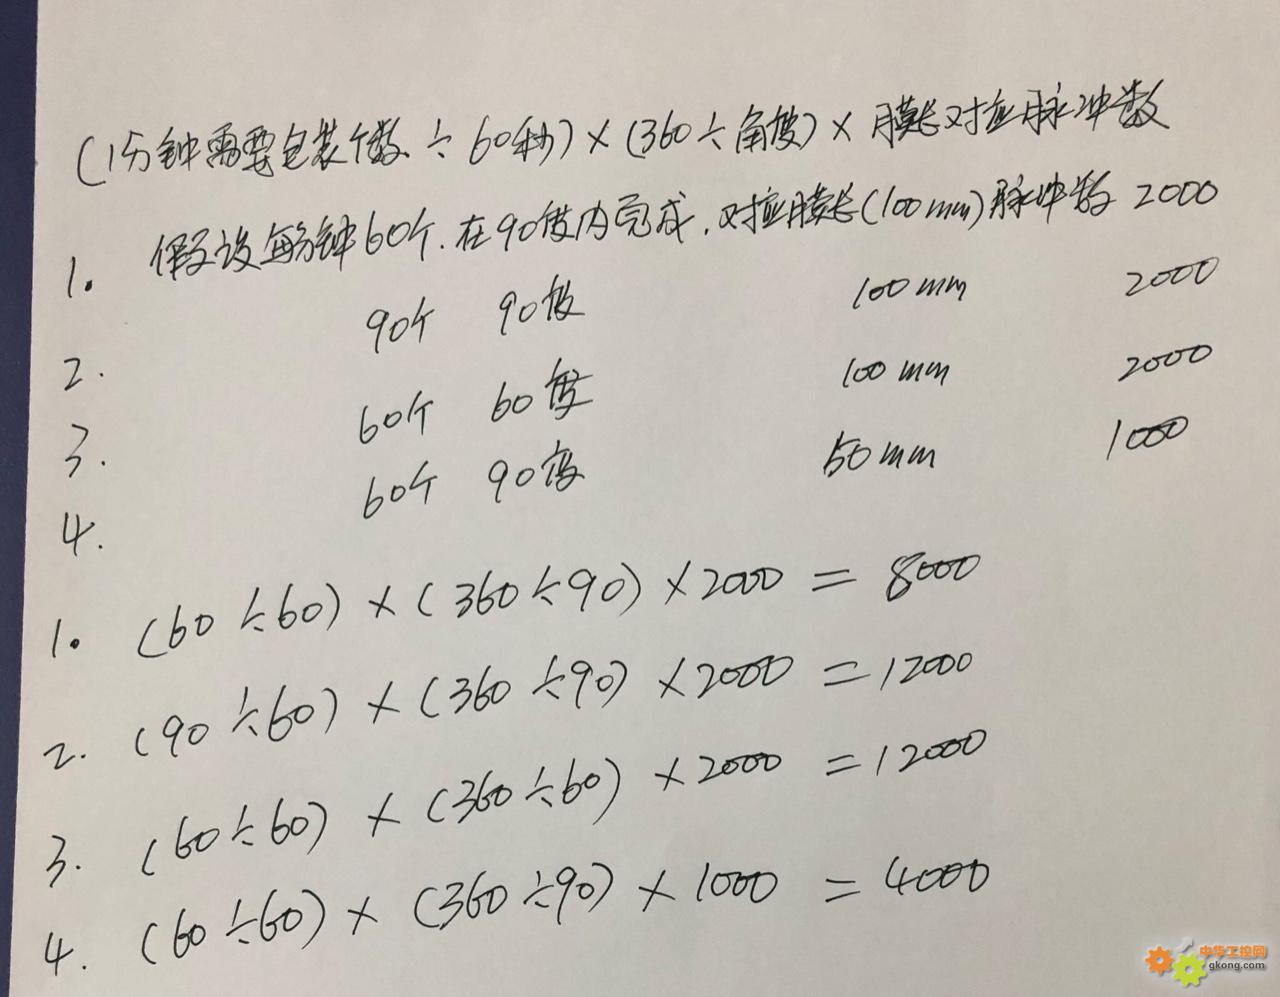 (1分钟需要包装个数÷60秒)×(360÷角度)×膜长对应脉冲数
1. 假设每分钟60个.在90度内完成,对应膜长(100mm)脉冲数 2000
2. 90个 90度 100mm 2000
3. 60个 60度 100mm 2000
4. 60个 90度 50mm 1000
1. (60÷60)×(360÷90)×2000=8000
2. (90÷60)×(360÷90)×2000=12000
3. (60÷60)×(360÷60)×2000=12000
4. (60÷60)×(360÷90)×1000=4000
中华工控网
gkong.com